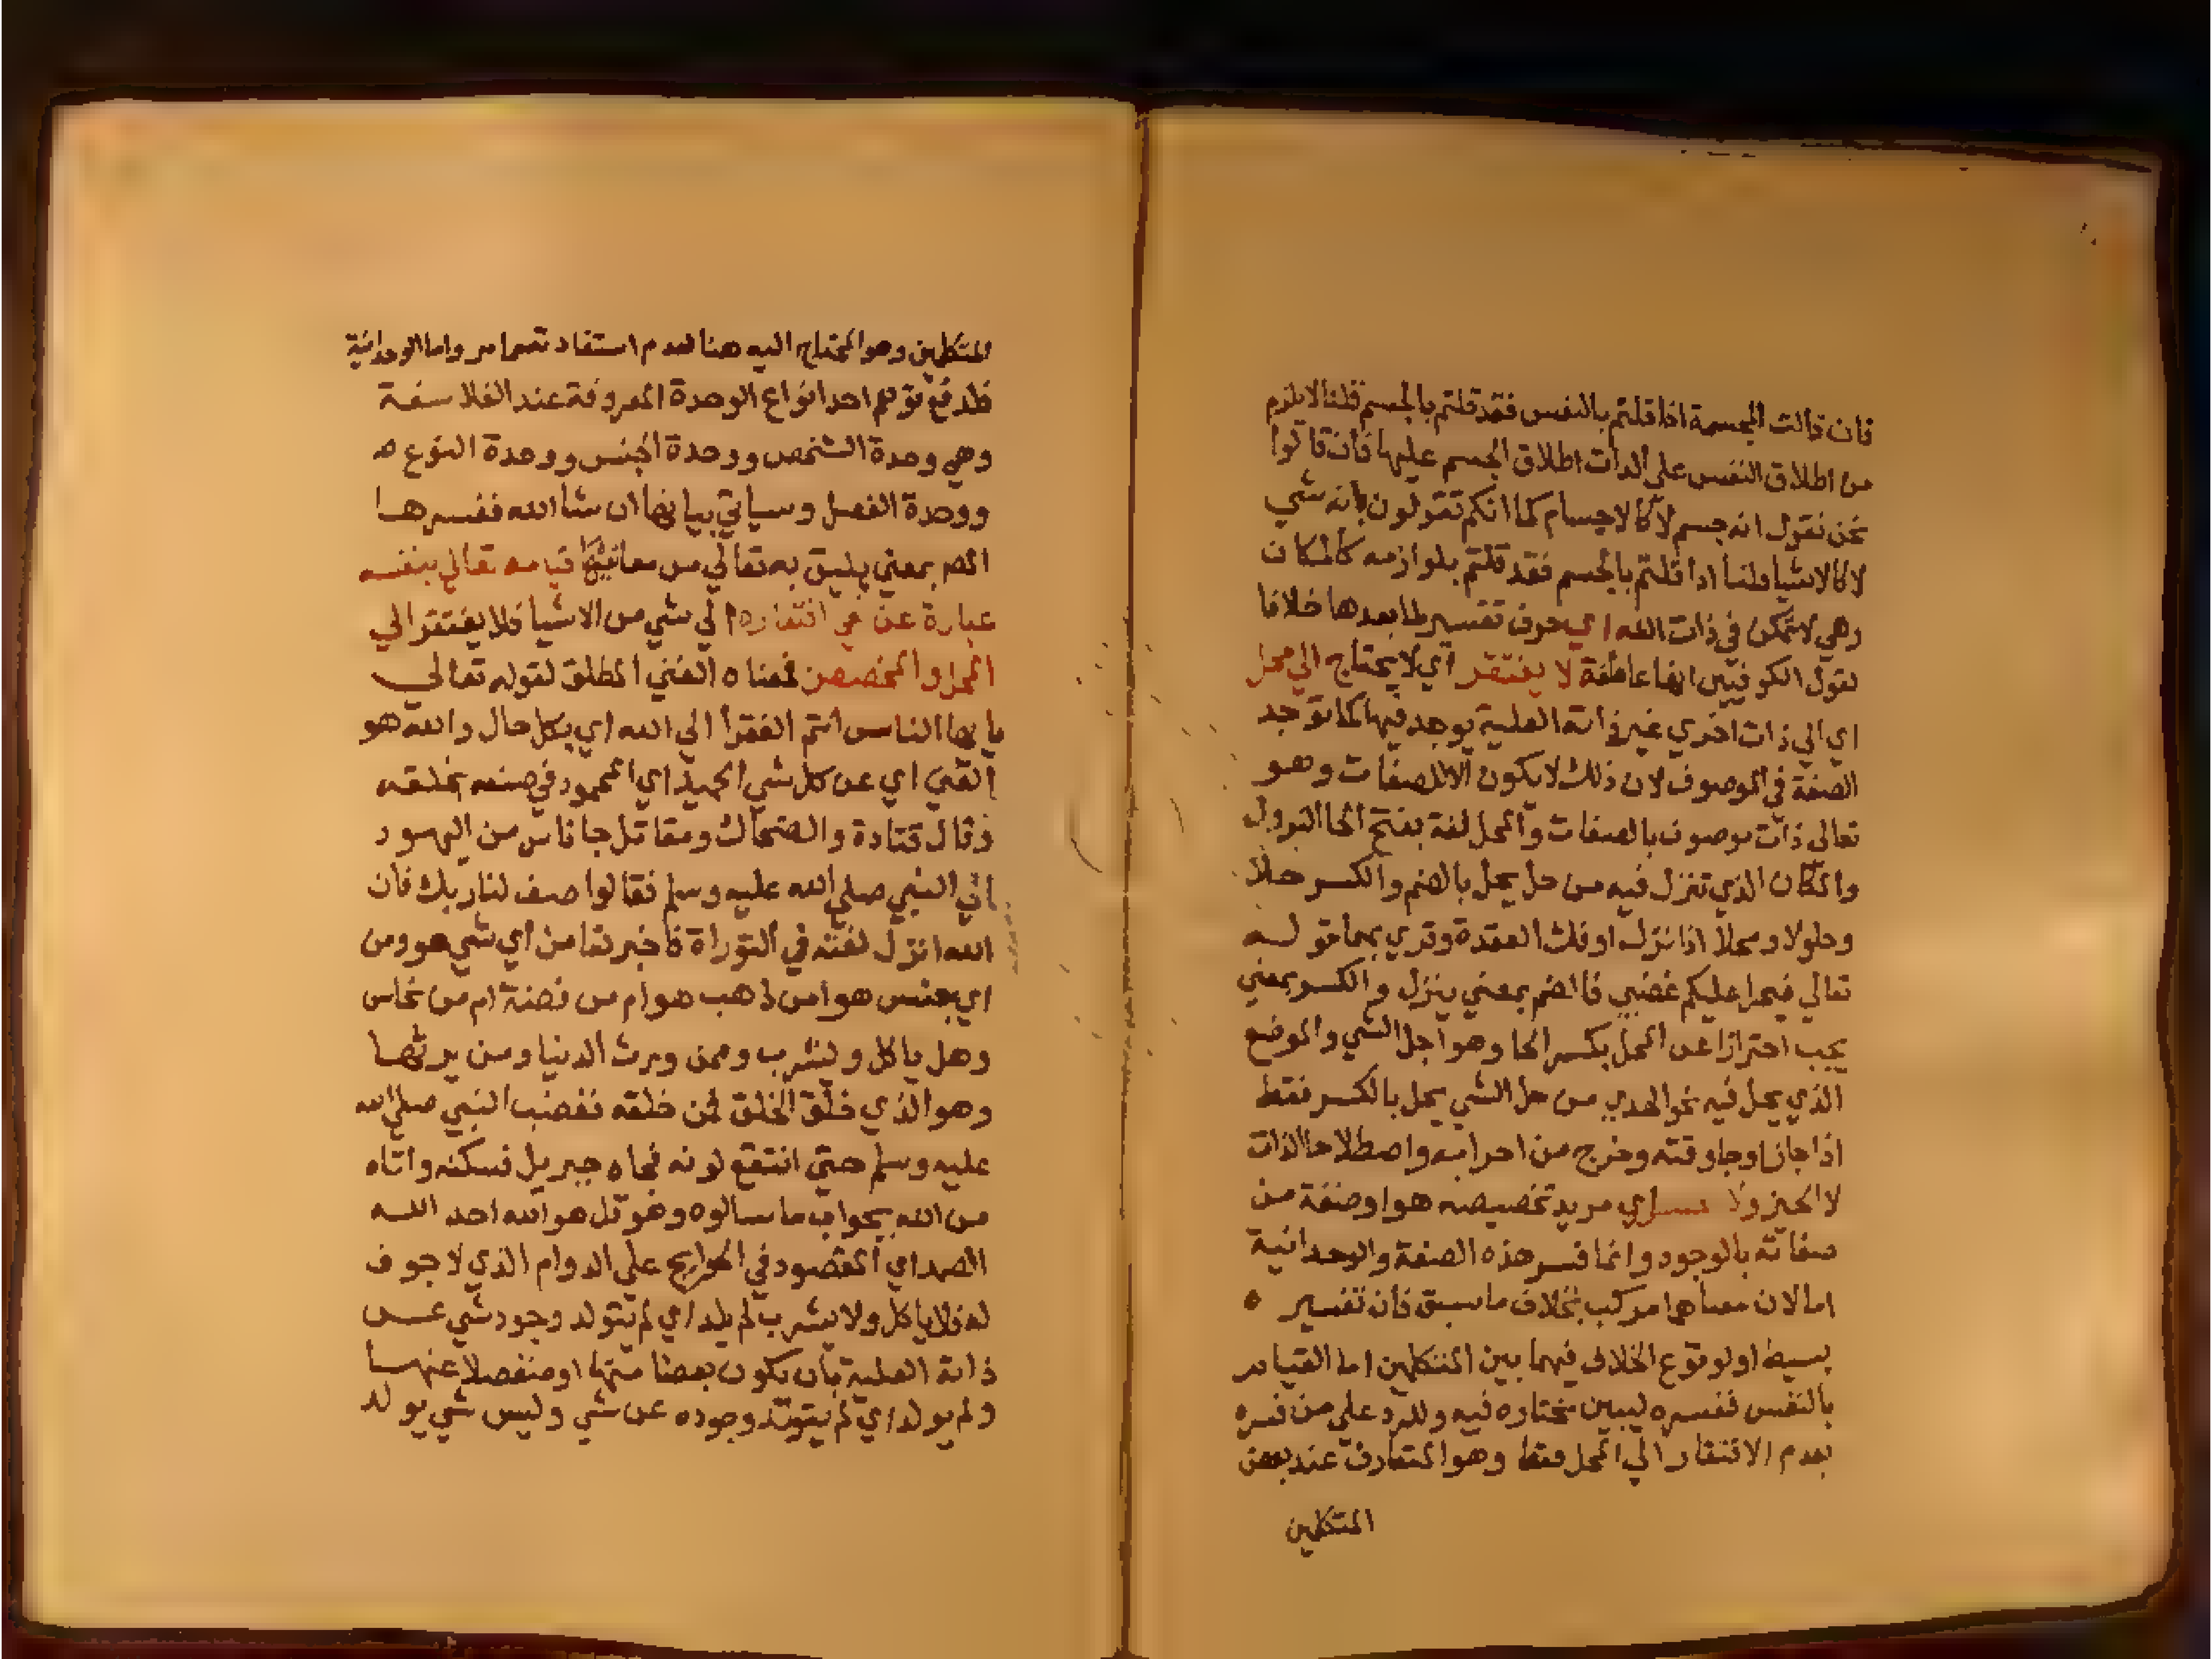 فان قالت المجسمة اذا قلتم بالنفس فقد قلتم بالجسم قلنا لا يلزم
من اطلاق النفس على الذات اطلاق الجسم عليها فان قالوا
نحن نقول انه جسم لا كالاجسام كما انكم تقولون بانه شي
لا كالاشيا ولنا اذا قلتم بالجسم فقد قلتم بلوازمه كالمكان
وهي لا تمكن في ذات الله اي حرف تفسير لما بعدها خلافا
لقول الكوفيين انها عاطفة لا يفتقر اي لا يحتاج الي محل
اي الي ذات اخري غير ذاته العلية يوجد فيها كما توجد
الصفة في الموصوف لان ذلك لا يكون الا للصفات وهو
تعالى ذات موصوف بالصفات والمحل لغة بفتح الحا النزول
والمكان الذي تنزل فيه من حل يحل بالضم والكسر حلا
وحلولا ومحلا اذا نزل او فك العقدة وقري بهما قوله
تعالي فيحل عليكم غضبي فالضم بمعني ينزل والكسر بمعني
يجب احترازا عن المحل بكسر الحا وهو اجل الشي والموضع
الذي يحل فيه نحو الهدي من حل الشي يحل بالكسر فقط
اذا جاز اوجا وقته وخرج من احرامه واصطلاحا الذات
لا الحيز ولا اي مريد تخصيصه هو اوصفة من
صفاته بالوجود وانما فسر هذه الصفة والوحدانية
اما لان معناهما مركب بخلاف ما سبق فان تفسير
بسيط او لوقوع الخلاف فيهما بين المتكلمين اما القيام
بالنفس ففسره ليبين مختاره فيه وللرد علي من فسره
بعدم الافتقار الي المحل فقط وهو المتعارف عند بعض
المتكلمين
المتكلمين وهو المحتاج اليه هنا لعدم استفادته مما مر واما الوحدانية
فلدفع توهم احد انواع الوحدة المعروفة عند الفلاسفة
وهي وحدة الشخص ووحدة الجنس ووحدة النوع
ووحدة الفصل وسياتي بيانها ان شا الله ففسرها
المص بمعني يليق به تعالي من معانيها قيامه تعالي بنفسه
عبارة عن نفي افتقاره الي شي من الاشيا فلا يفتقر الي
المحل والمخصص فمعناه الغني المطلق لقوله تعالي
يا يها الناس انتم الفقرا الي الله اي بكل حال والله هو
الغني اي عن كل شي الحميد اي المحمود في صنعه بخلقه
وقال قتادة والضحاك ومقاتل جا ناس من اليهود
الي النبي صلي الله عليه وسلم فقالوا صف لنا ربك فان
الله انزل نعته في التوراة فاخبرنا من اي شي هو ومن
اي جنس هو امن ذهب هو ام من فضة ام من نحاس
وهل ياكل ويشرب وممن ورث الدنيا ومن يرثها
وهو الذي خلق الخلق فمن خلقه فغضب النبي صلي الله
عليه وسلم حتي انتقع لونه فجاه جبريل فسكنه واتاه
من الله بجواب ما سالوه وهو قل هو الله احد الله
الصمد اي المقصود في الحوايج علي الدوام الذي لا جوف
له فلا ياكل ولا يشرب لم يلد اي لم يتولد وجود شي عن
ذاته العلية بان يكون بعضا منها او منفصلا عنها
ولم يولد اي لم يتولد وجوده عن شي وليس شي يولد